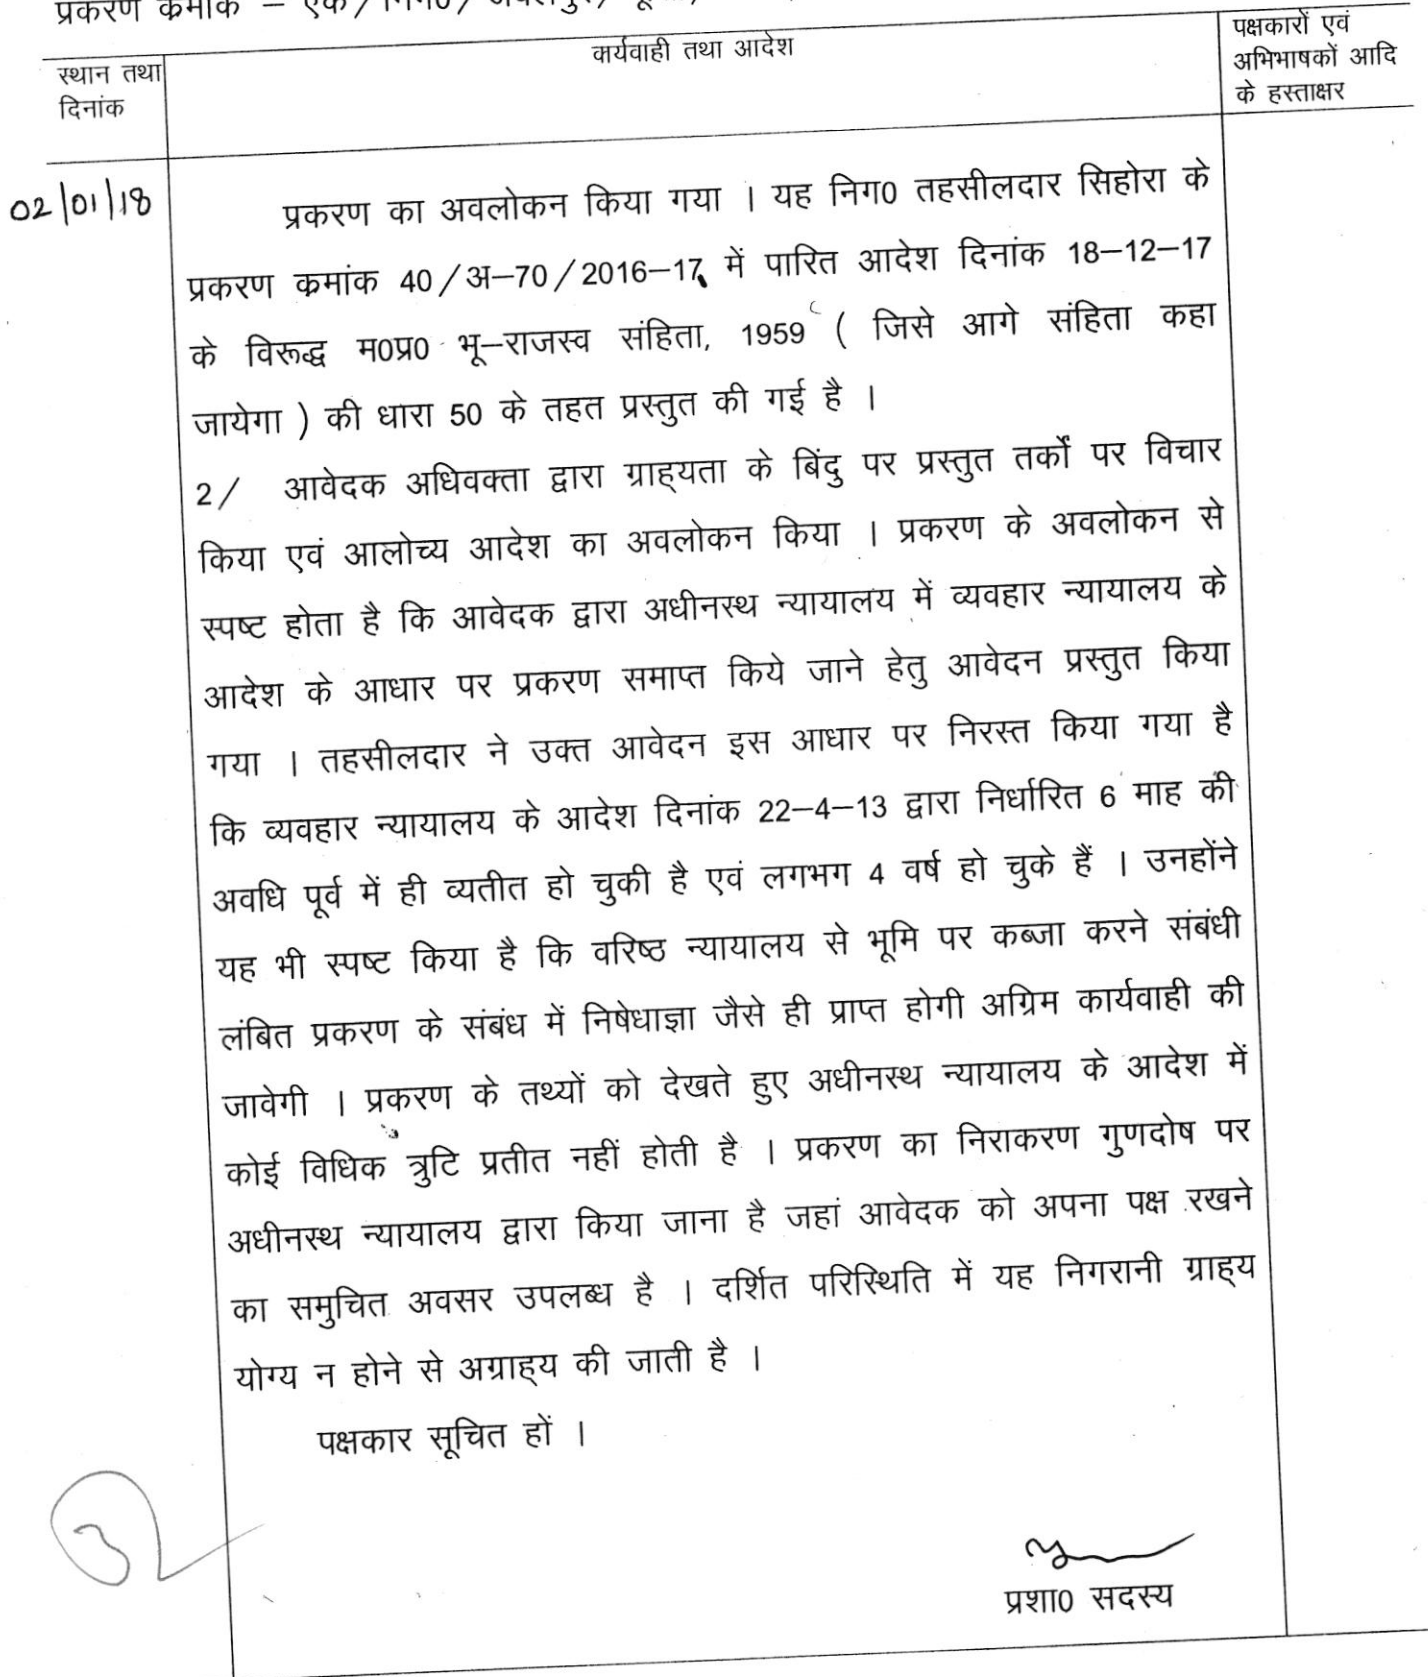 प्रकरण क्रमांक – एक/निग0/
स्थान तथा
दिनांक
कार्यवाही तथा आदेश
पक्षकारों एवं
अभिभाषकों आदि
के हस्ताक्षर
02/01/18
प्रकरण का अवलोकन किया गया । यह निग0 तहसीलदार सिहोरा के
प्रकरण क्रमांक 40/अ–70/2016–17 में पारित आदेश दिनांक 18–12–17
के विरूद्ध म0प्र0 भू–राजस्व संहिता, 1959 ( जिसे आगे संहिता कहा
जायेगा ) की धारा 50 के तहत प्रस्तुत की गई है ।
2/ आवेदक अधिवक्ता द्वारा ग्राह्यता के बिंदु पर प्रस्तुत तर्कों पर विचार
किया एवं आलोच्य आदेश का अवलोकन किया । प्रकरण के अवलोकन से
स्पष्ट होता है कि आवेदक द्वारा अधीनस्थ न्यायालय में व्यवहार न्यायालय के
आदेश के आधार पर प्रकरण समाप्त किये जाने हेतु आवेदन प्रस्तुत किया
गया । तहसीलदार ने उक्त आवेदन इस आधार पर निरस्त किया गया है
कि व्यवहार न्यायालय के आदेश दिनांक 22–4–13 द्वारा निर्धारित 6 माह की
अवधि पूर्व में ही व्यतीत हो चुकी है एवं लगभग 4 वर्ष हो चुके हैं । उनहोंने
यह भी स्पष्ट किया है कि वरिष्ठ न्यायालय से भूमि पर कब्जा करने संबंधी
लंबित प्रकरण के संबंध में निषेधाज्ञा जैसे ही प्राप्त होगी अग्रिम कार्यवाही की
जावेगी । प्रकरण के तथ्यों को देखते हुए अधीनस्थ न्यायालय के आदेश में
कोई विधिक त्रुटि प्रतीत नहीं होती है । प्रकरण का निराकरण गुणदोष पर
अधीनस्थ न्यायालय द्वारा किया जाना है जहां आवेदक को अपना पक्ष रखने
का समुचित अवसर उपलब्ध है । दर्शित परिस्थिति में यह निगरानी ग्राह्य
योग्य न होने से अग्राह्य की जाती है ।
पक्षकार सूचित हों ।
प्रशा0 सदस्य